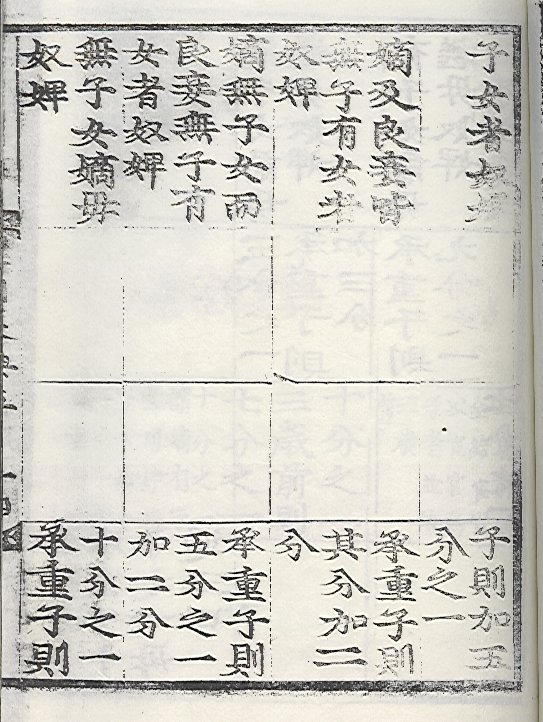 子女者奴婢
嫡及良妾皆
無子有女者
奴婢
嫡無子女而
良妾無子有
女者奴婢
無子女嫡母
奴婢
子則加五
分之一
承重子則
其分加二
分
承重子則
五分之一
加二分
十分之一
承重子則